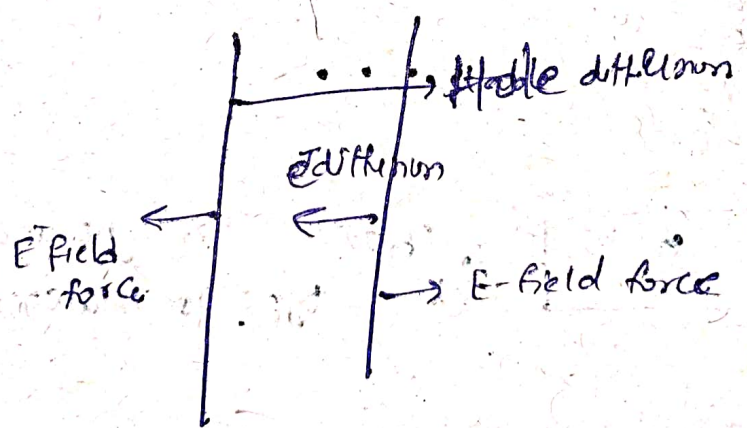 Hole diffusion
e⁻ diffusion
E field
force
E-field force